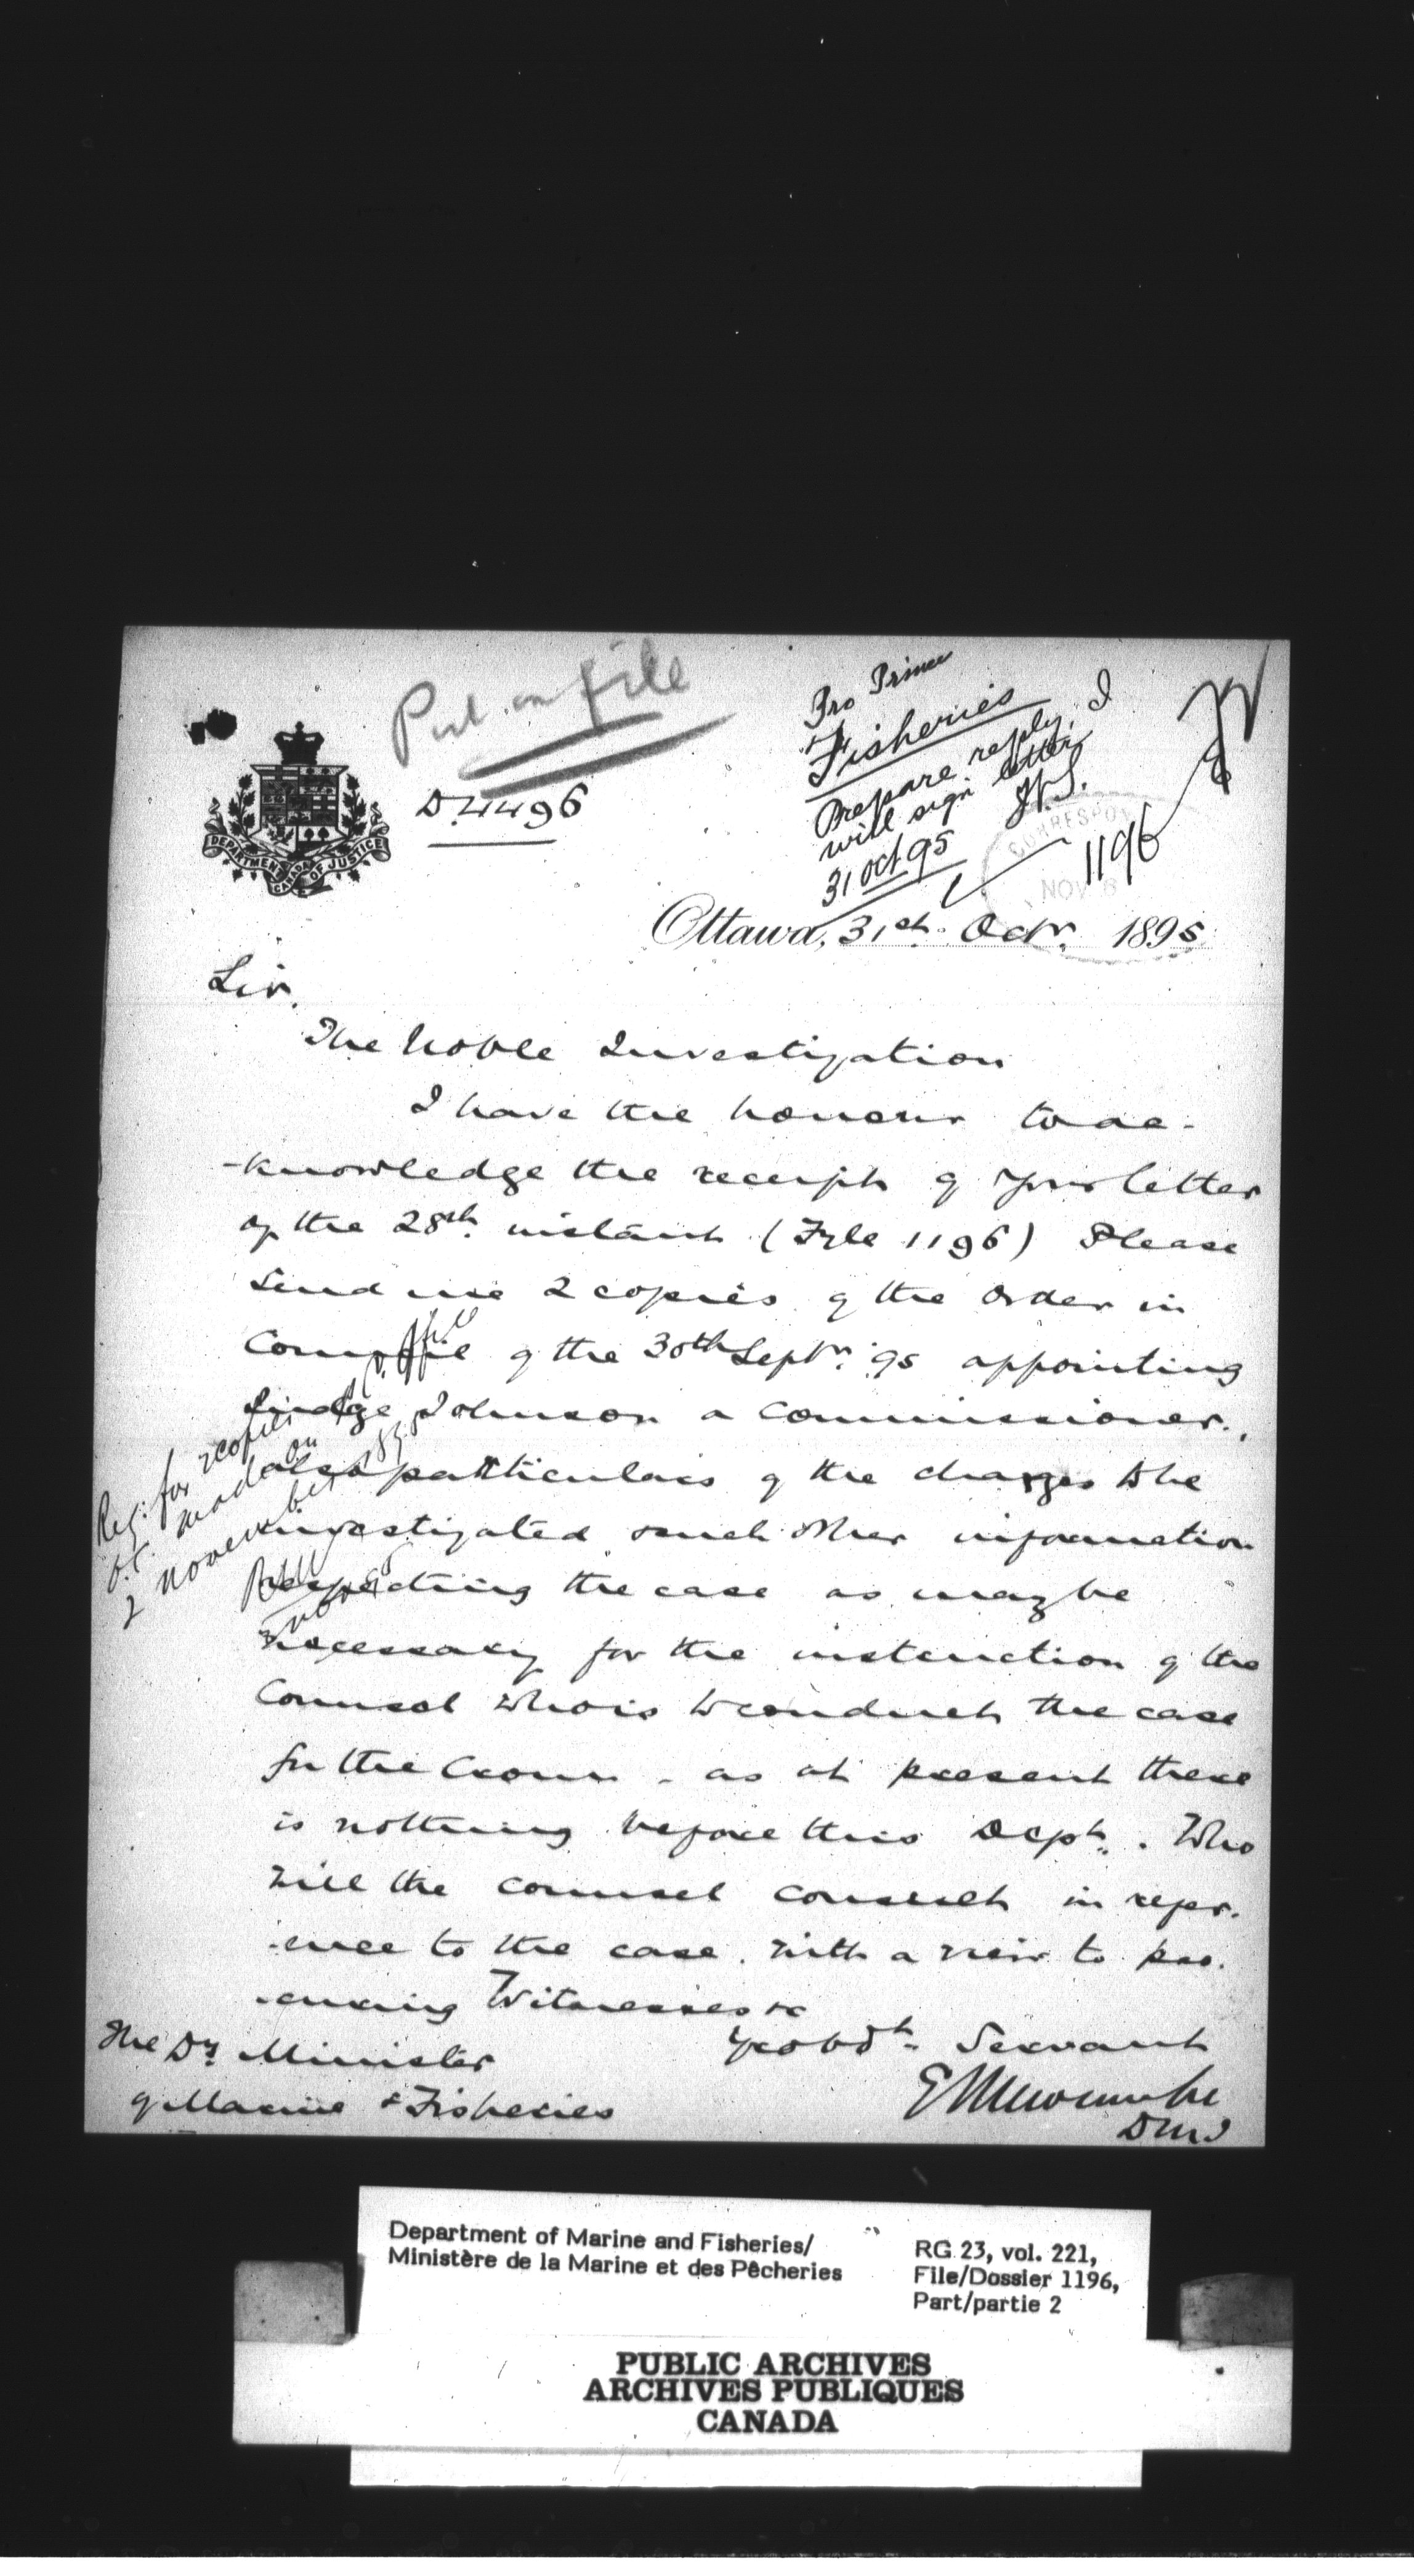 Put on file
D.4496
DEPARTMENT OF JUSTICE
CANADA
Pro Prince
Fisheries
Prepare reply, I
will sign letter
31 Oct 95
CORRESPON
NOV 6
1196
Ottawa, 31st. Octr. 1895
Sir.
The Noble Investigation
I have the honour to ac-
-knowledge the receipt of your letter
of the 28th. instant (Fyle 1196) Please
send me 2 copies of the Order in
Council of the 30th Septr. 95 appointing
Judge Johnson a Commissioner.,
also particulars of the charges to be
investigated & such other information
respecting the case as may be
necessary for the instruction of the
Counsel who is to conduct the case
for the Crown - as at present there
is nothing before this Dept. . Who
will the counsel consult in refer-
-ence to the case. with a view to pro-
-curing Witnesses &c
Reg. for copies
O.C. made on
2 November 1895
Yr obdt. Servant
E L Newcombe
D M J
The Dy. Minister
of Marine & Fisheries
Department of Marine and Fisheries/
Ministère de la Marine et des Pêcheries
RG 23, vol. 221,
File/Dossier 1196,
Part/partie 2
PUBLIC ARCHIVES
ARCHIVES PUBLIQUES
CANADA